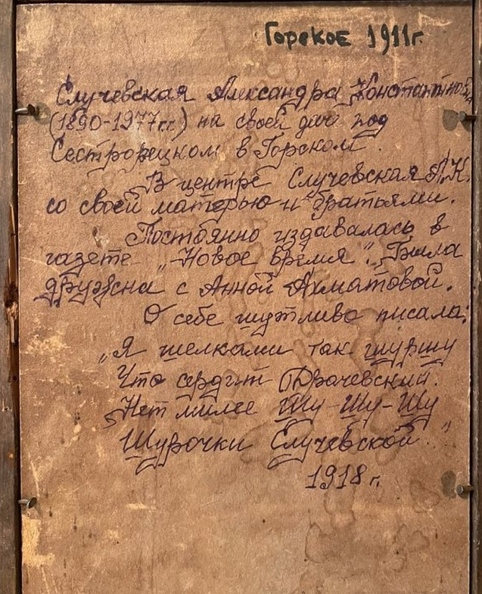 Горское 1911г.
Случевская Александра Константиновна
(1890-1977гг.) на своей даче под
Сестрорецком в Горском.
В центре Случевская А.К.
со своей матерью и братьями.
Постоянно издавалась в
газете „Новое время". Была
дружна с Анной Ахматовой.
О себе шутливо писала:
„Я шелками так шуршу
Что сердит Драчевский.
Нет милее Шу-Шу-Шу
Шурочки Случевской."
1918г.